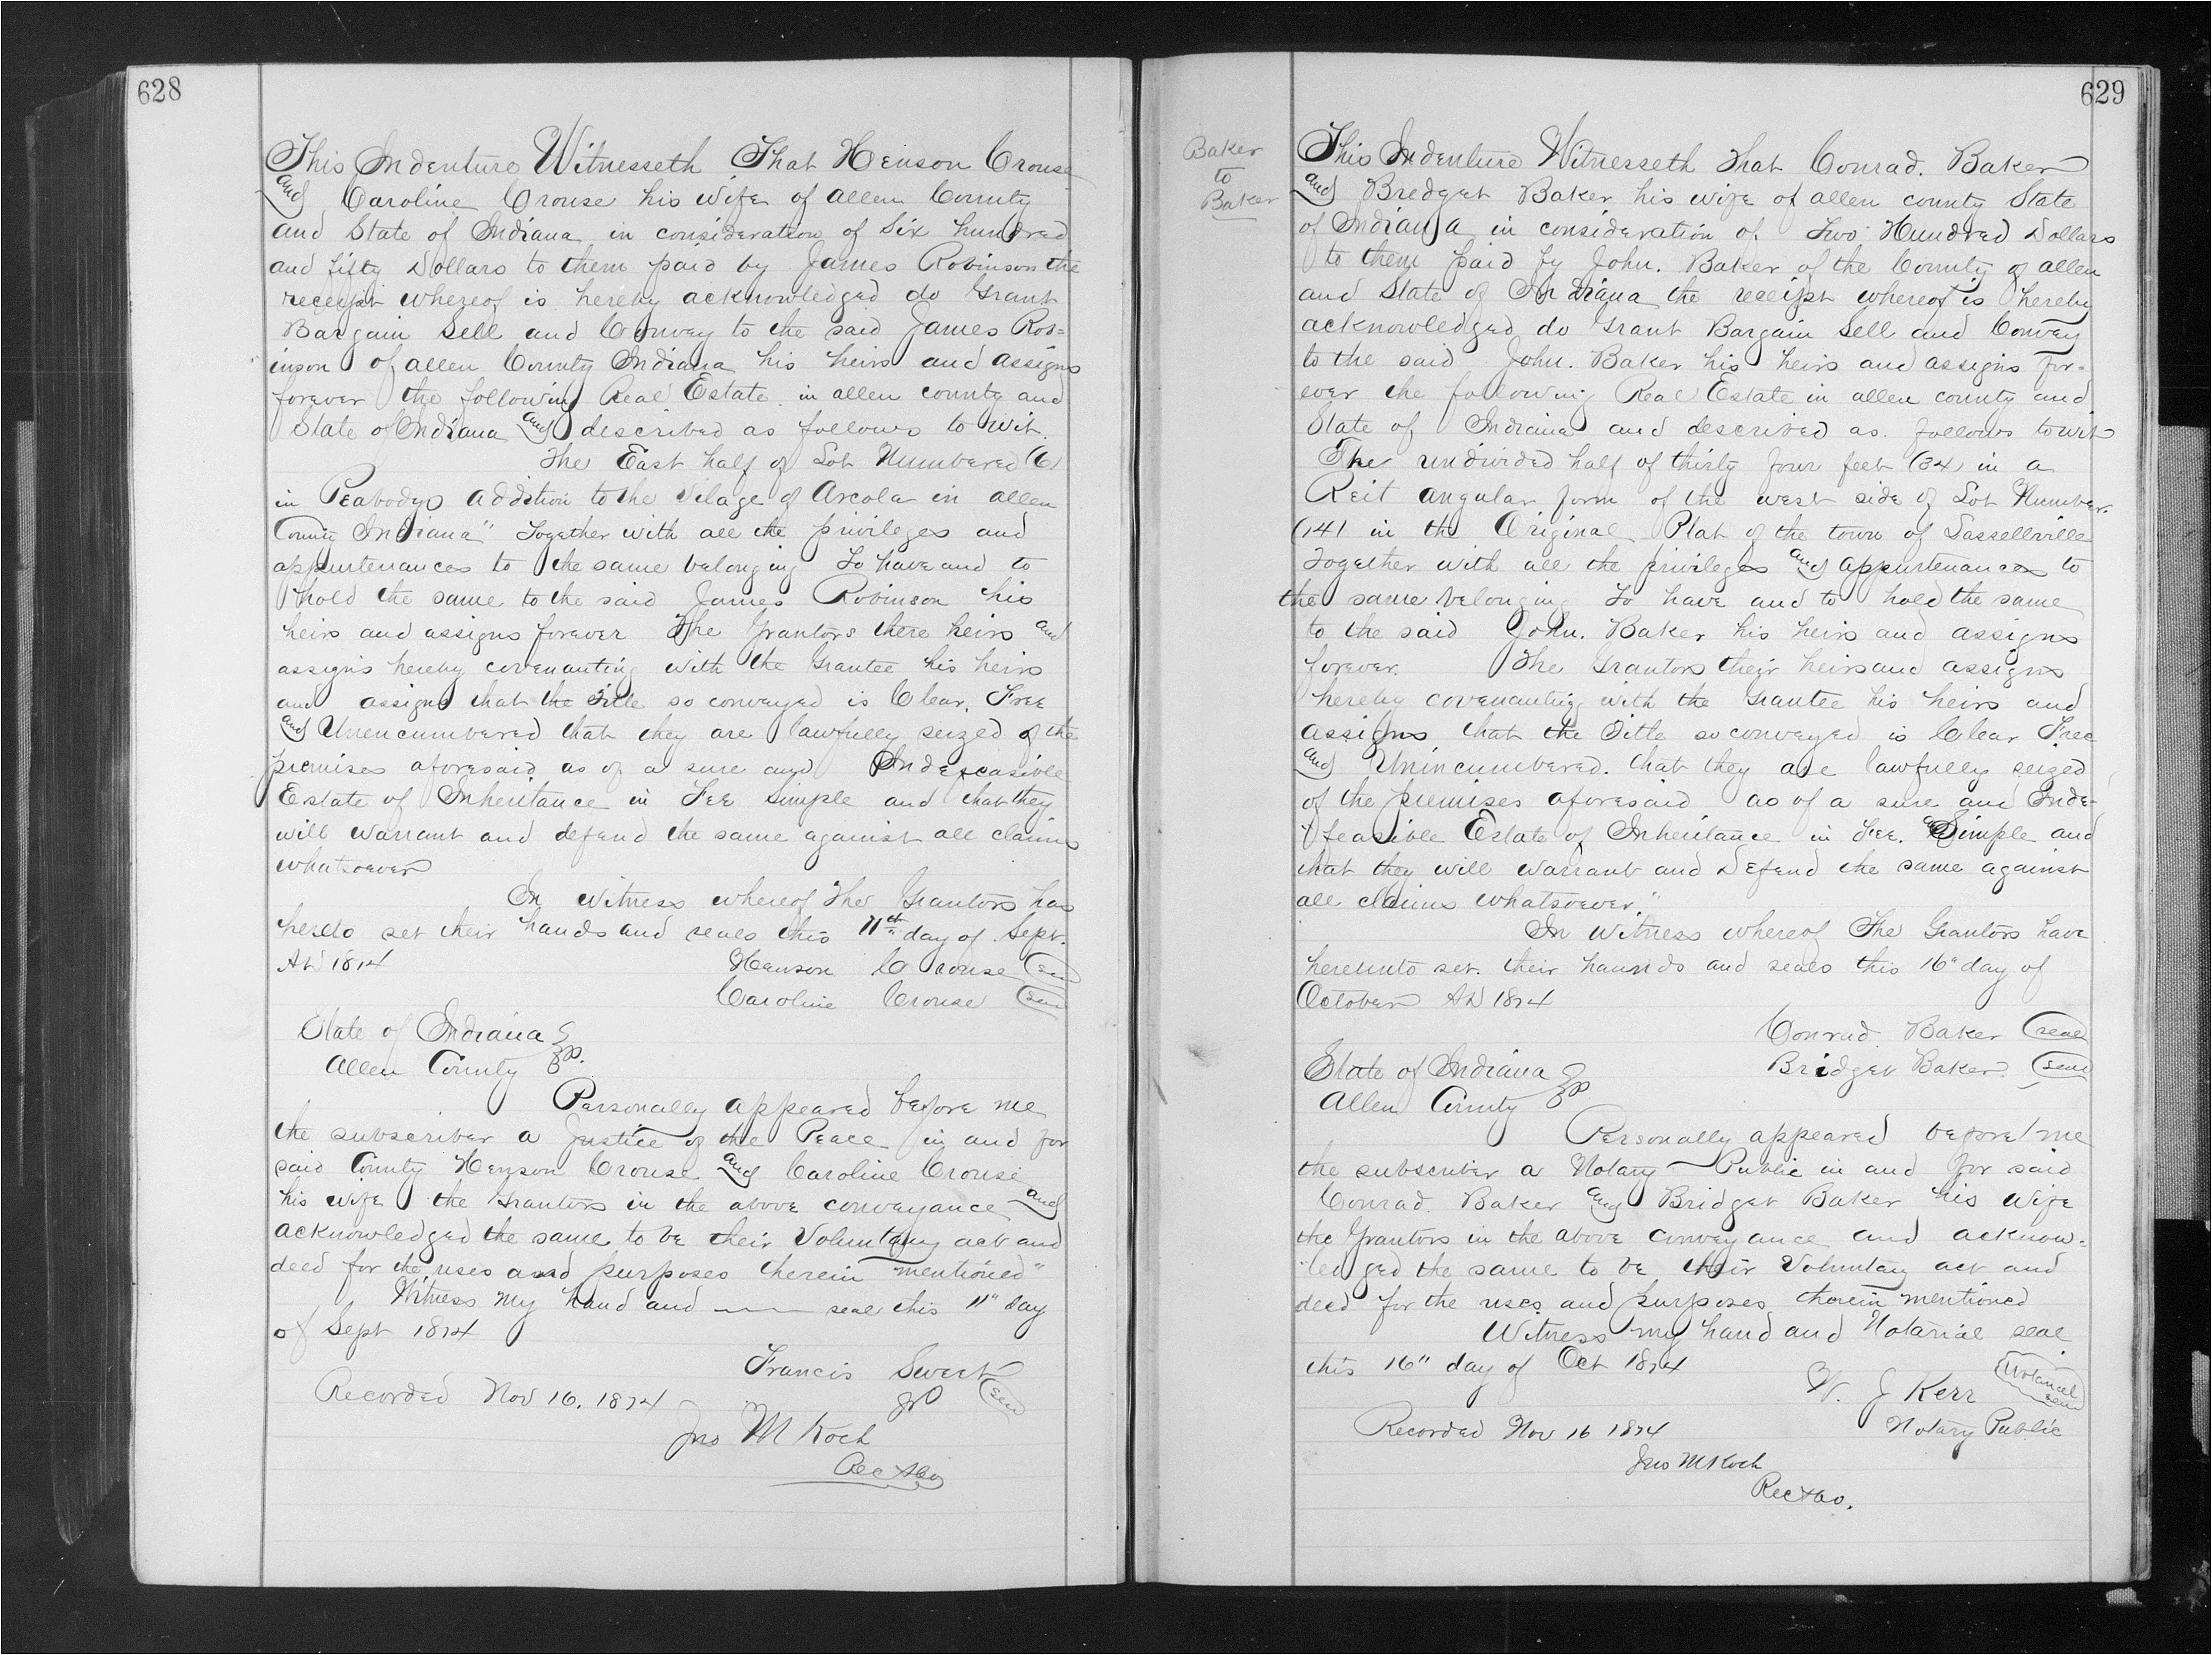 628
This Indenture Witnesseth That Henson Crouse
and Caroline Crouse his wife of allen County
and State of Indiana in consideration of Six hundred
and fifty Dollars to them paid by James Robinson the
receipt whereof is hereby acknowledged do Grant
Bargain Sell and Convey to the said James Rob=
inson of allen County Indiana his heirs and assigns
forever the following Real Estate in allen county and
State of Indiana and described as follows to wit.
The East half of Lot Numbered (6)
in Peabodys addition to the Vilage of Arcola in allen
County Indiana" Together with all the privileges and
appurtenances to the same belonging To have and to
hold the same to the said James Robinson his
heirs and assigns forever The Grantors there heirs and
assigns hereby covenanting with the Grantee his heirs
and assigns that the Title so conveyed is Clear, Free
and Unencumbered that they are lawfully seized of the
premises aforesaid as of a sure and Indefeasible
Estate of Inheritance in Fee Simple and that they
will warrant and defend the same against all claims
whatsoever
In witness whereof The Grantors has
hereto set their hands and seals this 11th day of Sept.
AD 1874
Henson Crouse seal
Caroline Crouse seal
State of Indiana
Allen County ss.
Personally appeared before me
the subscriber a Justice of the Peace in and for
said County Henson Crouse and Caroline Crouse
his wife the Grantors in the above conveyance and
acknowledged the same to be their Voluntary act and
deed for the uses and purposes therein mentioned"
Witness my hand and —— seal this 11" day
of Sept 1874
Francis Sweet
JP seal
Recorded Nov 16. 1874
Jno M Koch
Rec
629
Baker
to
Baker
This Indenture Witnesseth That Conrad. Baker
and Bredget Baker his wife of allen county State
of Indiana in consideration of. Two Hundred Dollars
to them paid by John. Baker of the County of allen
and State of Indiana the receipt whereof is hereby
acknowledged do Grant Bargain Sell and Convey
to the said John. Baker his heirs and assigns for-
ever the following Real Estate in allen county and
State of Indiana and described as. follows towit
The undivided half of thirty four feet (34) in a
Reit angular form of the west side of Lot Number.
(14) in the Original Plat of the town of Sassellville
Together with all the privileges and appurtenances to
the same belonging To have and to hold the same
to the said John. Baker his heirs and assigns
forever. The Grantors their heirs and assigns
hereby covenanting with the Grantee his heirs and
assigns that the Title so conveyed is Clear Free
and Unincumbered. that they are lawfully seized
of the premises aforesaid as of a sure and Inde-
feasible Estate of Inheritance in Fee. Simple and
that they will warrant and Defend the same against
all claims whatsoever."
In Witness whereof The Grantors have
hereunto set. their haunds and seals this 16" day of
October AD 1874
Conrad. Baker seal
Bridget Baker. seal
State of Indiana
Allen County ss
Personally appeared before me
the subscriber a Notary Public in and for said
Conrad. Baker and Bridget Baker his wife
the Grantors in the above conveyance and acknow=
ledged the same to be their Voluntary act and
deed for the uses and purposes therein mentioned
Witness my hand and Notarial seal
this 16" day of Oct 1874
W. J Kerr Notarial seal
Notary Public
Recorded Nov 16 1874
Jno M Koch